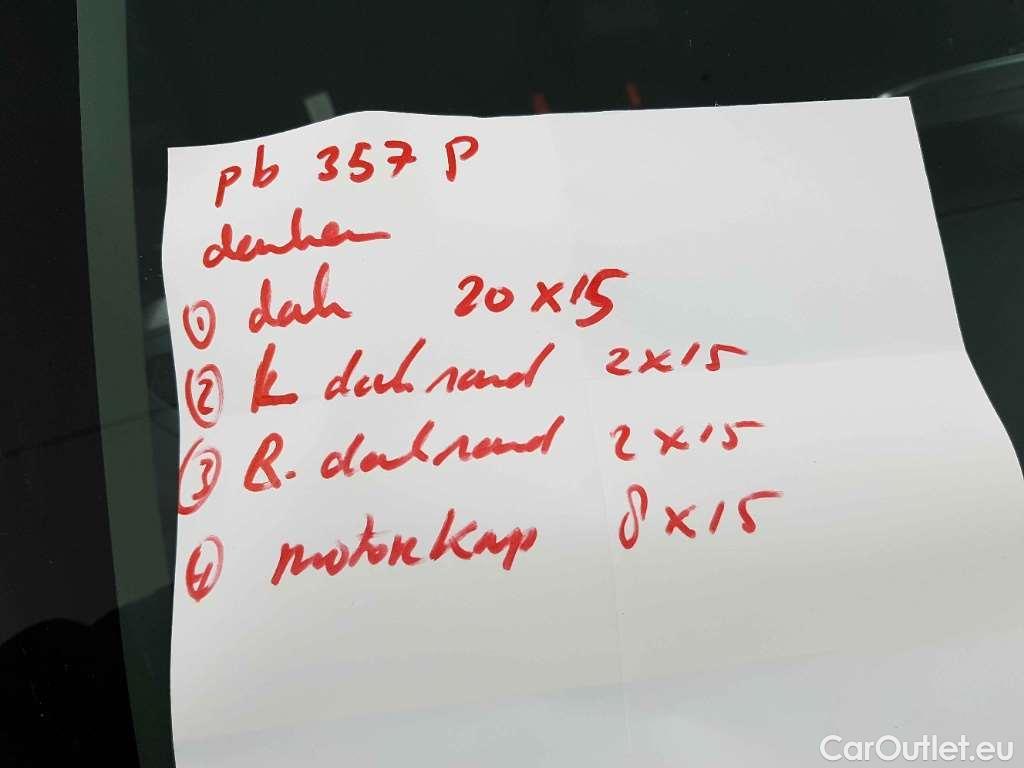 pb 357 P
deuken
① dak 20 x 15
② R dakrand 2 x 15
③ R. dakrand 2 x 15
④ motorkap 8 x 15
CarOutlet.eu